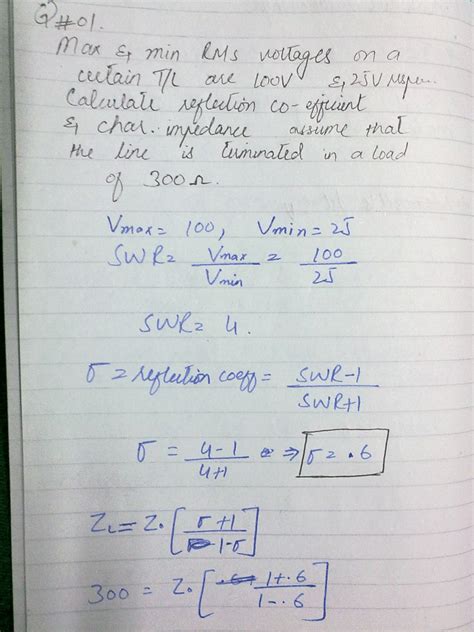 Q#01.
Max & min RMS voltages on a
certain T/L are 100V & 25V respec.
Calculate reflection co-efficient
& char. impedance assume that
the line is terminated in a load
of 300Ω.
Vmax = 100, Vmin = 25
SWR = Vmax / Vmin = 100 / 25
SWR = 4.
σ = reflection coeff = SWR-1 / SWR+1
σ = 4-1 / 4+1 ⇒ σ = .6
ZL = Z₀ [σ+1 / 1-σ]
300 = Z₀ [1+.6 / 1-.6]